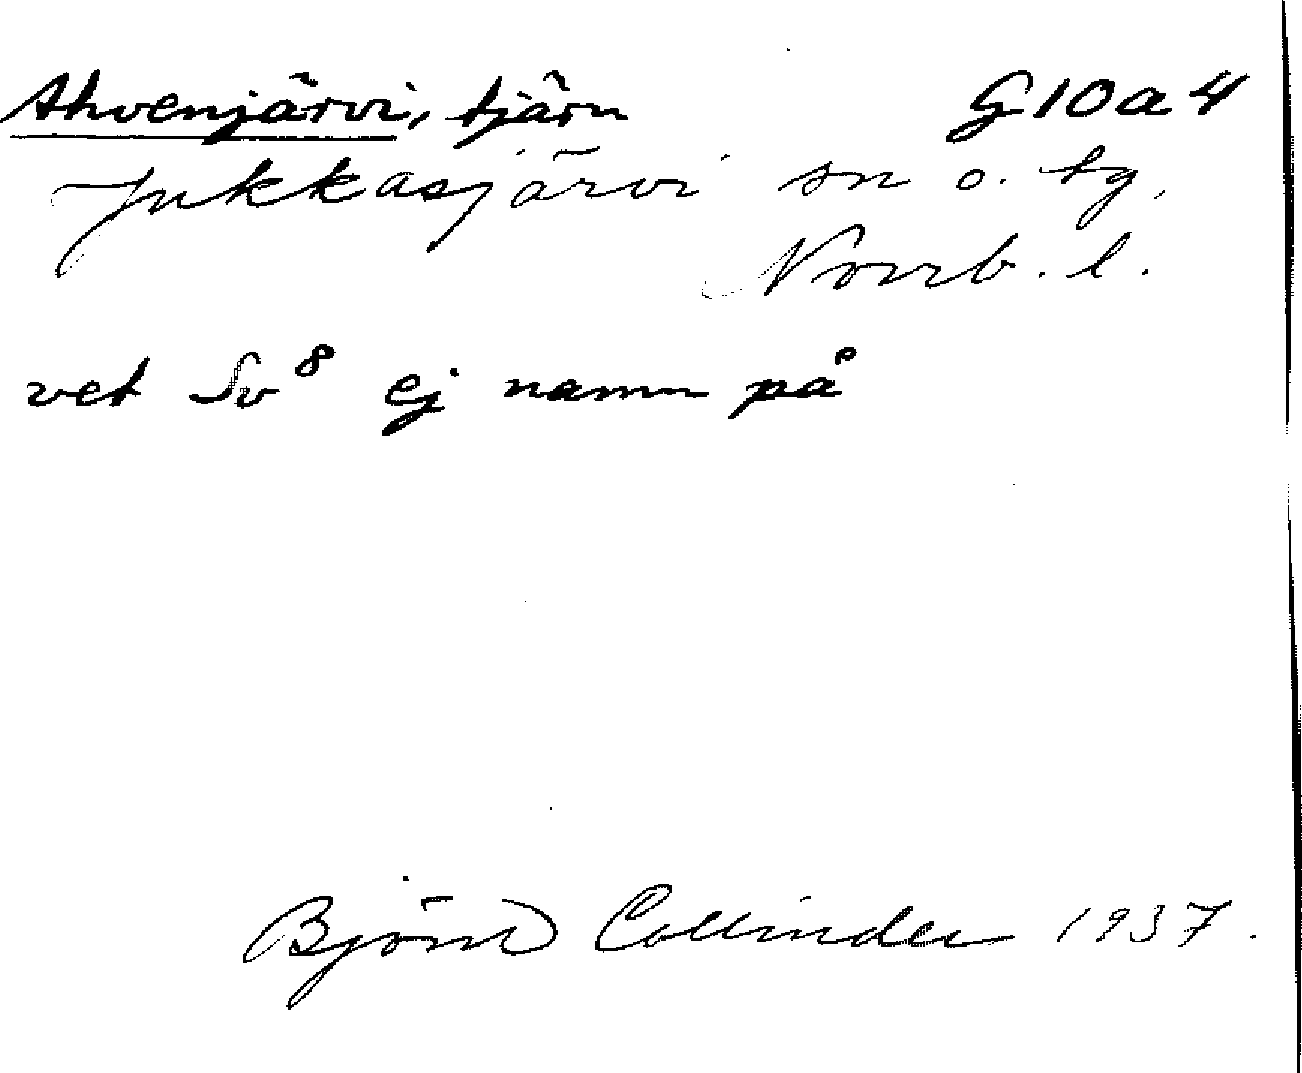 Ahvenjärvi, tjärn G10a4
Jukkasjärvi sn o. tg,
Norrb. l.
vet Sv⁸ ej namn på
Björn Collinder 1937.